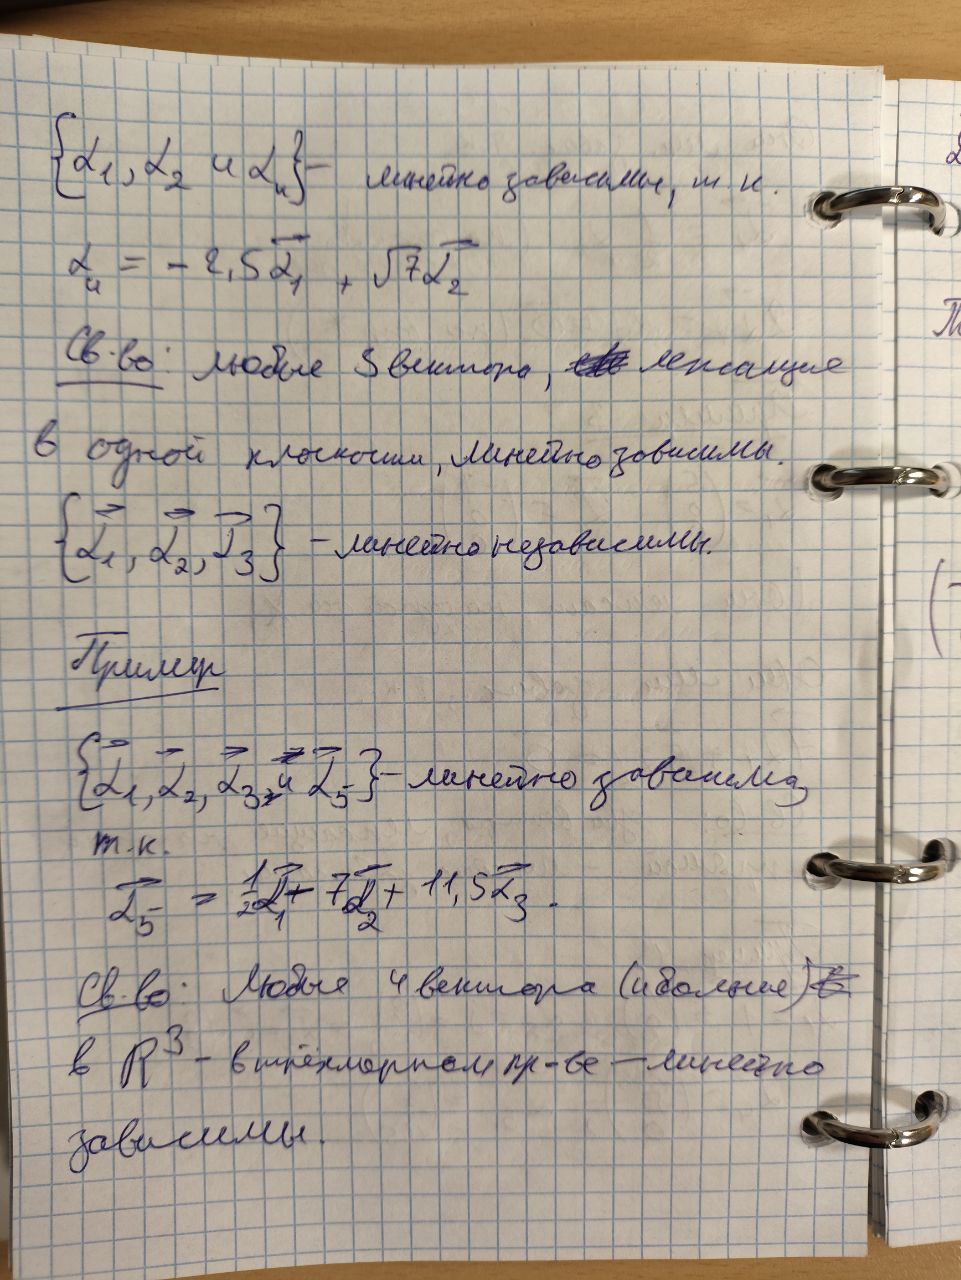 {α₁, α₂ и α₄} – линейно зависимы, т к.
α₄ = -2,5α⃗₁ + √7α⃗₂
Св-во: Любые 3 вектора, лежащие
в одной плоскости, линейно зависимы.
{α⃗₁, α⃗₂, α⃗₃} – линейно независимы.
Пример
{α⃗₁, α⃗₂, α⃗₃, и α⃗₅} – линейно зависима,
т.к.
α⃗₅ = 1/2α⃗₁ + 7α⃗₂ + 11,5α⃗₃.
Св-во: Любые 4 вектора (и больше)
в R³ – в трёхмерном пр-ве – линейно
зависимы.